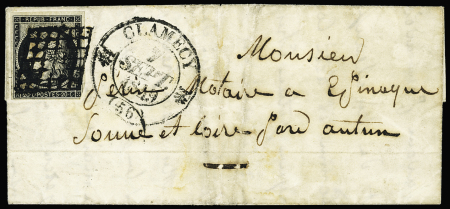 REPUB. FRANC.
CLAMECY
SEPT
49
(56)
Monsieur
Notaire à Epinaque
Sonne et loire pard autun